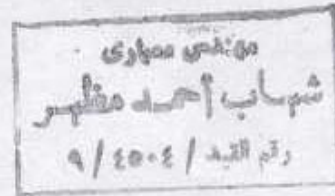 مهندس معمارى
شهاب أحمد مظهر
رقم القيد / ٤٥٠٤ / ٩